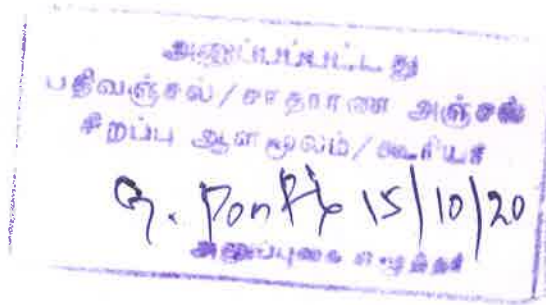 அனுப்பப்பட்டது
பதிவஞ்சல்/சாதாரண அஞ்சல்
சிறப்பு ஆள் மூலம்/கூரியர்
15/10/20
அனுப்புகை எழுத்தர்